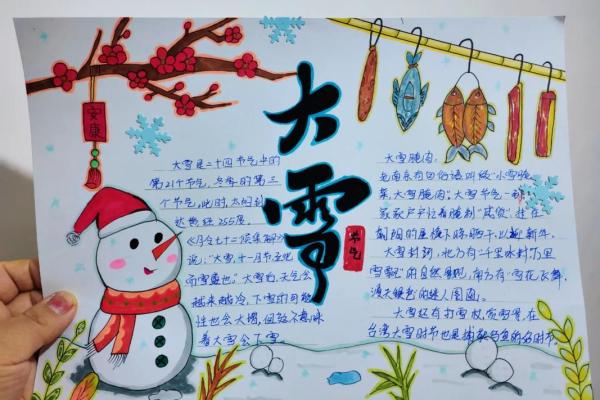 大雪
节气
安康
大雪是二十四节气中的
第21个节气，冬季的第三
个节气，此时，太阳到
达黄经255度。
《月令七十二候集解》
说："大雪，十一月节，至此
而雪盛也。"大雪后，天气会
越来越冷，下雪的可能
性也会大增，但并不意味
着大雪会下雪。
大雪腌肉。
老南京有句俗语叫做"小雪腌
菜，大雪腌肉"，大雪节气一到，
家家户户忙着腌制"咸货"，挂在
朝阳的屋檐下晾晒干，以迎新年。
大雪封河，北方有"千里冰封，万里
雪飘"的自然景观，南方有"雪花飞舞，
漫天银色"的迷人图画。
大雪还有打雪仗，赏雪景，在
台湾大雪时节也是捕获乌鱼的好时节。